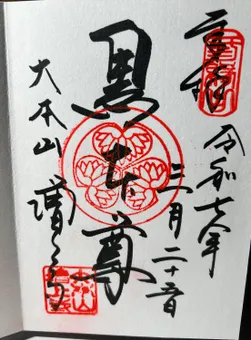 奉拝
令和七年
三月二十五日
黒本尊
大本山 増上寺